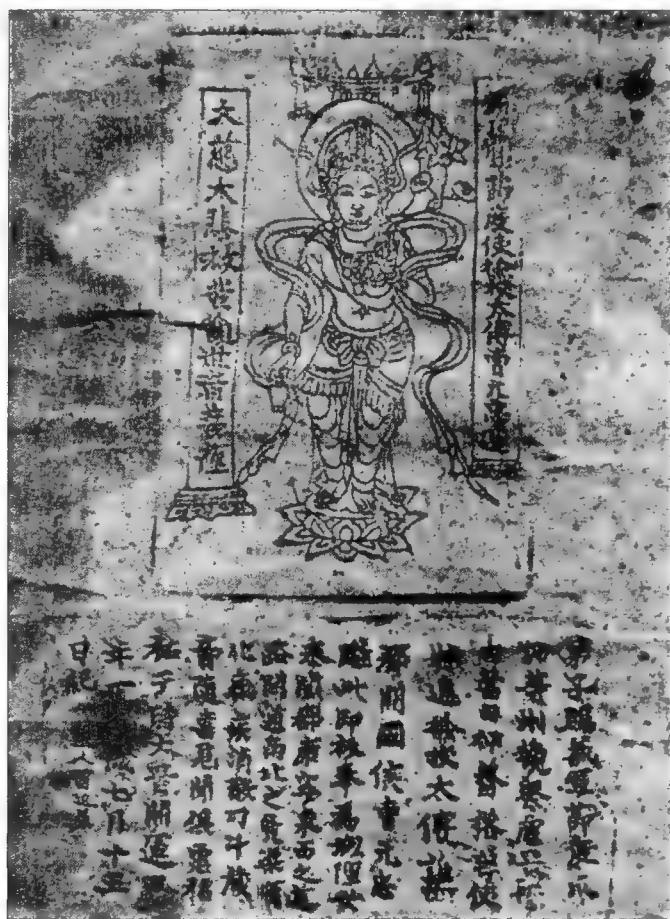 歸義軍節度使檢校太傅曹元忠造
大慈大悲救苦觀世音菩薩
弟子歸義軍節度瓜
沙等州觀察處置
營田押蕃落等使
特進檢校太傅譙
郡開國侯曹元忠
雕此印板奉為城隍安
泰闔郡康寧東西之道
路開通南北之凶渠順
化癘疾消散刁斗藏
音隨喜見聞俱霑福
祐于時大晉開運四
年 歲七月十五
日紀 匠人